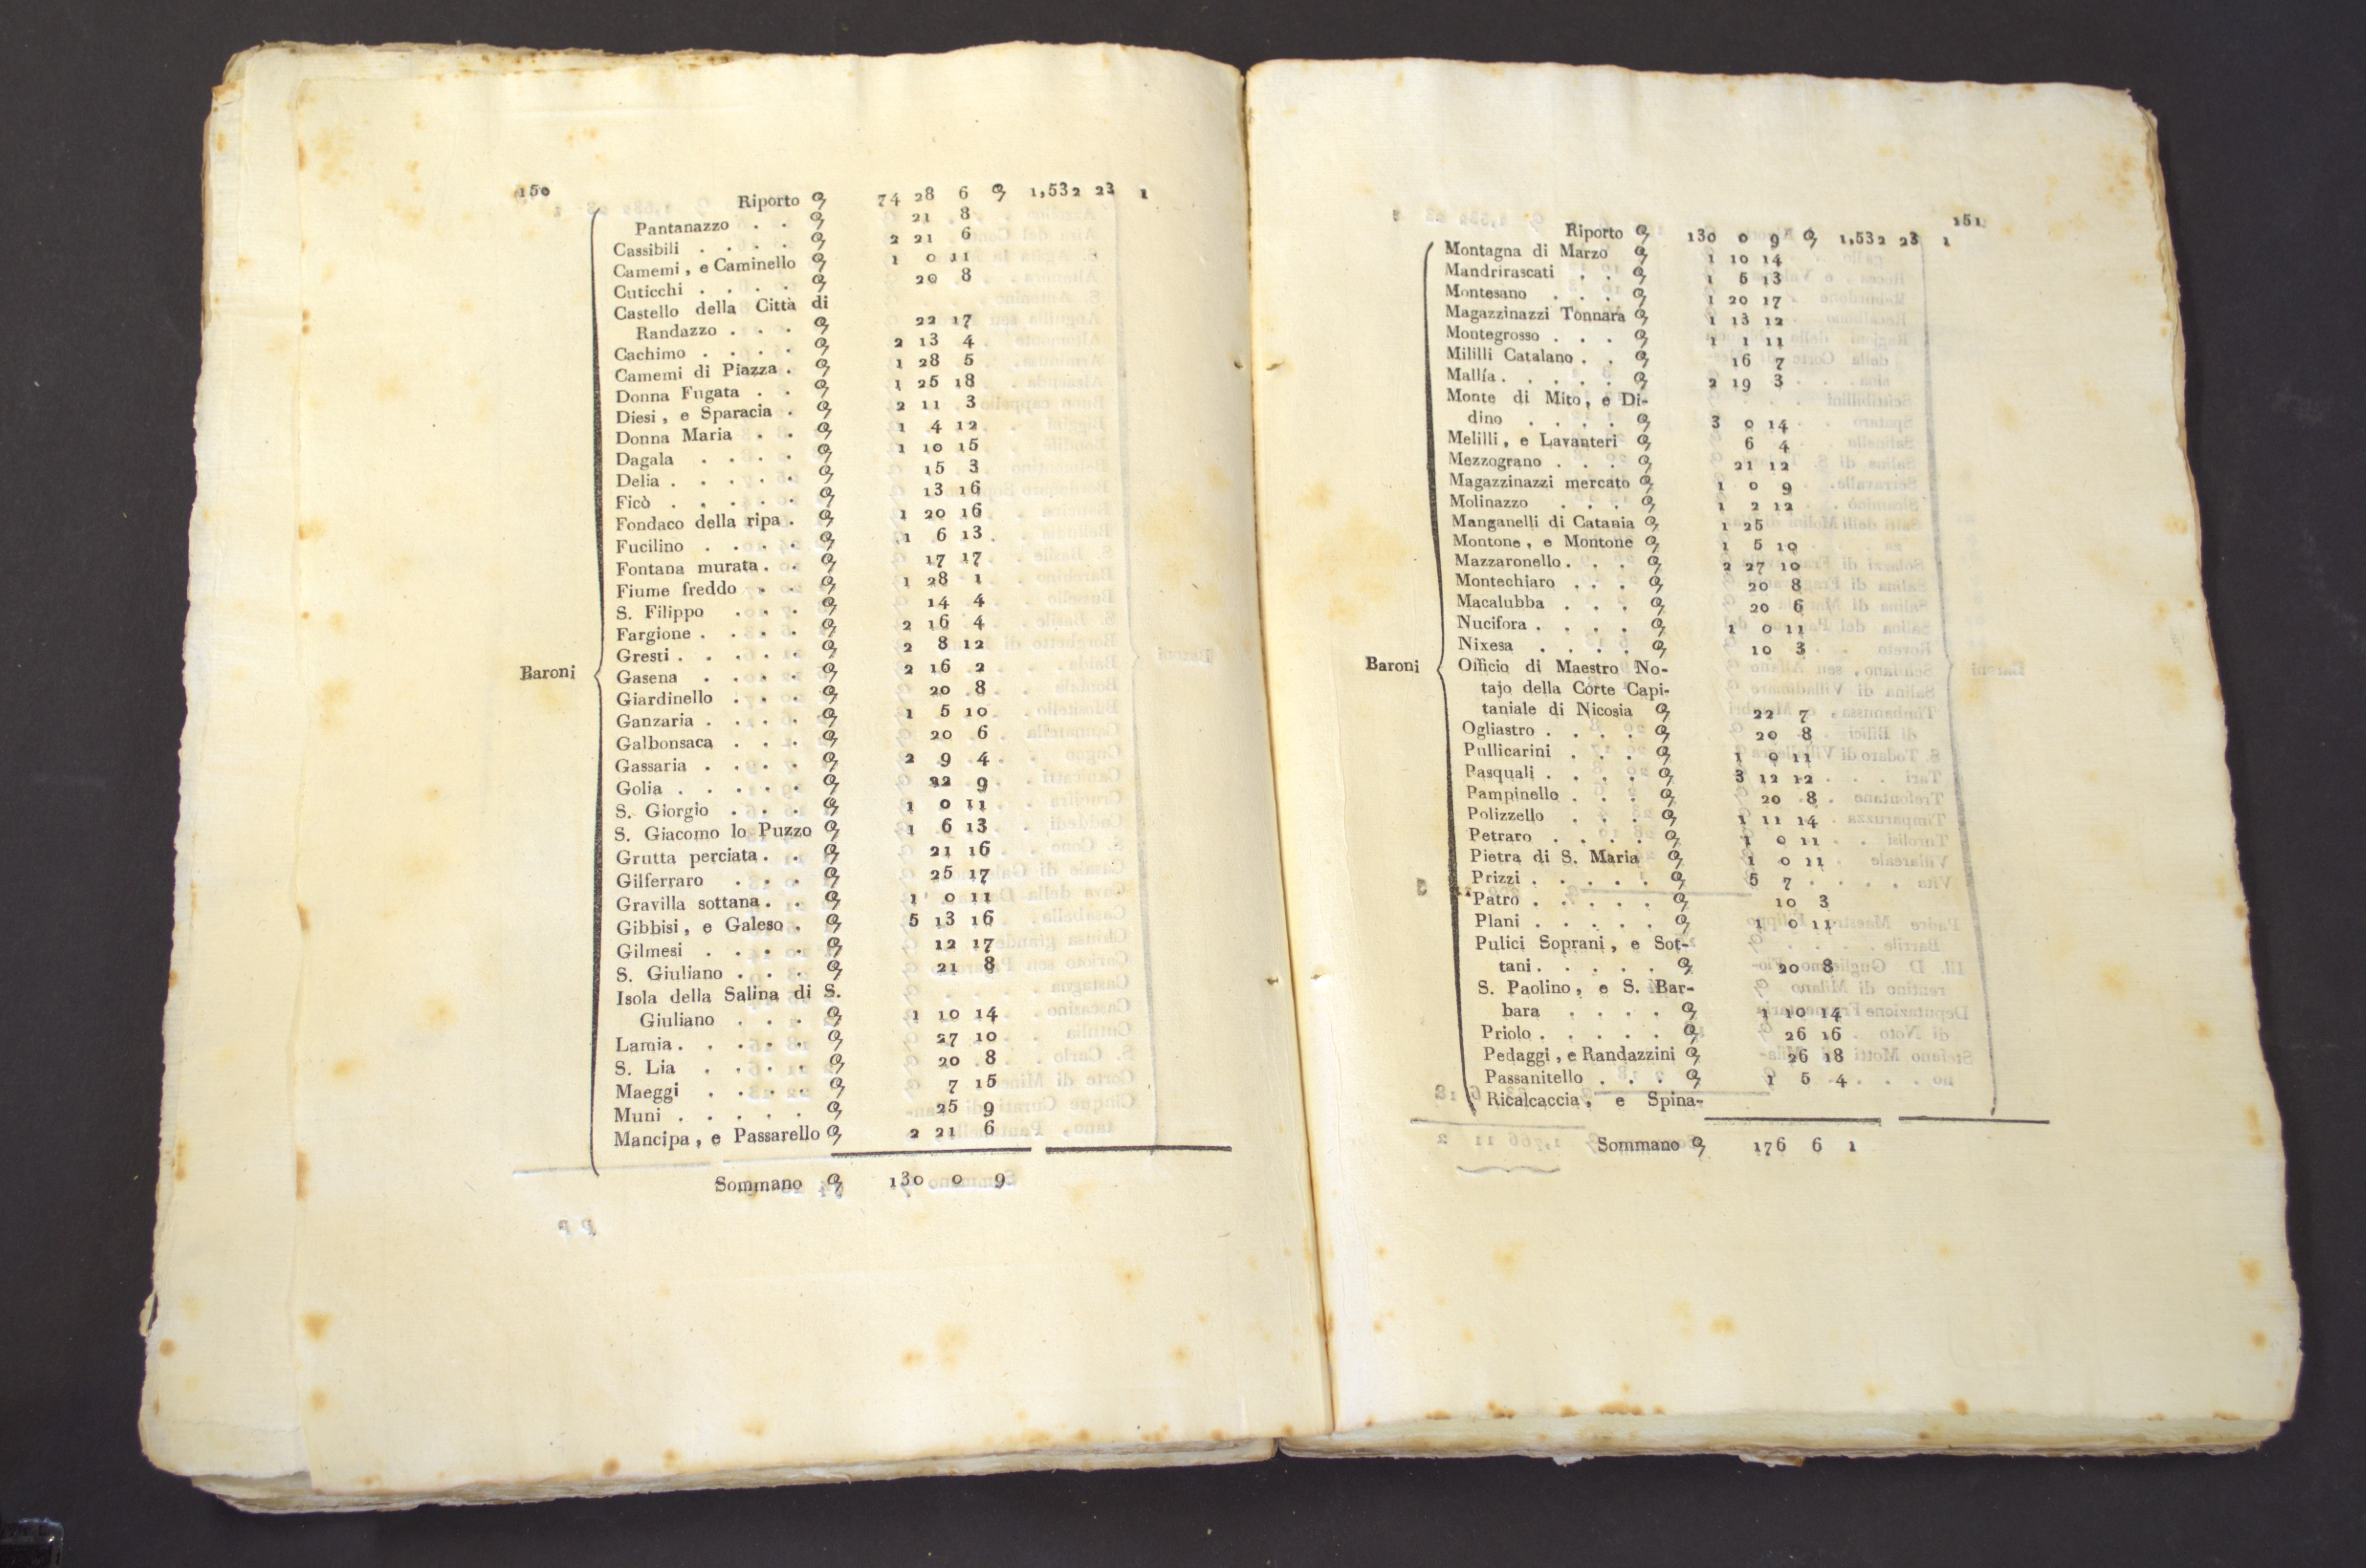 150
Riporto 74 28 6 1,532 23 1
Pantanazzo . . 21 8
Cassibili . . . . 2 21 6
Camemi , e Caminello 1 0 11
Cuticchi . . . . 20 8
Castello della Città di
Randazzo . . . 22 17
Cachimo . . . . 2 13 4
Camemi di Piazza . 1 28 5
Donna Fugata . . 1 25 18
Diesi , e Sparacia . 2 11 3
Donna Maria . . 1 4 12
Dagala . . . . 1 10 15
Delia . . . . . 15 3
Ficò . . . . . 13 16
Fondaco della ripa . 1 20 16
Fucilino . . . . 1 6 13
Fontana murata . . 17 17
Fiume freddo . . 1 28 1
S. Filippo . . . 14 4
Fargione . . . . 2 16 4
Gresti . . . . . 2 8 12
Gasena . . . . 2 16 2
Giardinello . . . 20 8
Ganzaria . . . . 1 5 10
Galbonsaca . . . 20 6
Gassaria . . . . 2 9 4
Golia . . . . . 22 9
S. Giorgio . . . 1 0 11
S. Giacomo lo Puzzo 1 6 13
Grutta perciata . . 21 16
Gilferraro . . . 25 17
Gravilla sottana . . 1 0 11
Gibbisi , e Galeso . 5 13 16
Gilmesi . . . . 12 17
S. Giuliano . . . 21 8
Isola della Salina di S.
Giuliano . . . 1 10 14
Lamia . . . . . 27 10
S. Lia . . . . 20 8
Maeggi . . . . 7 15
Muni . . . . . 25 9
Mancipa , e Passarello 2 21 6
Baroni
Sommano 130 0 9
151
Riporto 130 0 9 1,532 23 1
Montagna di Marzo 1 10 14
Mandrirascati . . 1 5 13
Montesano . . . 1 20 17
Magazzinazzi Tonnara 1 13 12
Montegrosso . . . 1 1 11
Mililli Catalano . . 16 7
Mallía . . . . . 2 19 3
Monte di Mito , e Di-
dino . . . . 3 0 14
Melilli , e Lavanteri 6 4
Mezzograno . . . 21 12
Magazzinazzi mercato 1 0 9
Molinazzo . . . 1 2 12
Manganelli di Catania 1 25
Montone , e Montone 1 5 10
Mazzaronello . . . 2 27 10
Montechiaro . . . 20 8
Macalubba . . . 20 6
Nucifora . . . . 1 0 11
Nixesa . . . . 10 3
Officio di Maestro No-
tajo della Corte Capi-
taniale di Nicosia 22 7
Ogliastro . . . . 20 8
Pullicarini . . . 1 0 11
Pasquali . . . . 3 12 12
Pampinello . . . 20 8
Polizzello . . . 1 11 14
Petraro . . . . 1 0 11
Pietra di S. Maria 1 0 11
Prizzi . . . . . 5 7
Patrò . . . . . 10 3
Plani . . . . . 1 0 11
Pulici Soprani , e Sot-
tani . . . . . 20 8
S. Paolino , e S. Bar-
bara . . . . 1 10 14
Priolo . . . . . 26 16
Pedaggi , e Randazzini 26 18
Passanitello . . . 1 5 4
Ricalcaccia , e Spina-
Baroni
Sommano 176 6 1